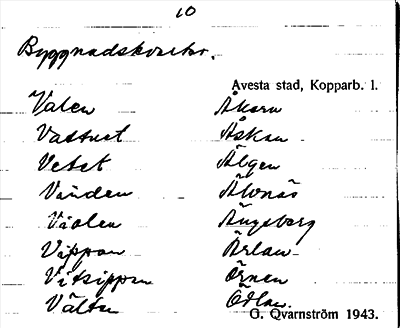 10
Byggnadskvarter.
Avesta stad, Kopparb. l.
Valen Åkern
Vattnet Åskan
Vetet Älgen
Vinden Älvnäs
Violen Ängsberg
Vippan Ärlan
Vitsippan Örnen
Välten Ödlan.
G. Qvarnström 1943.